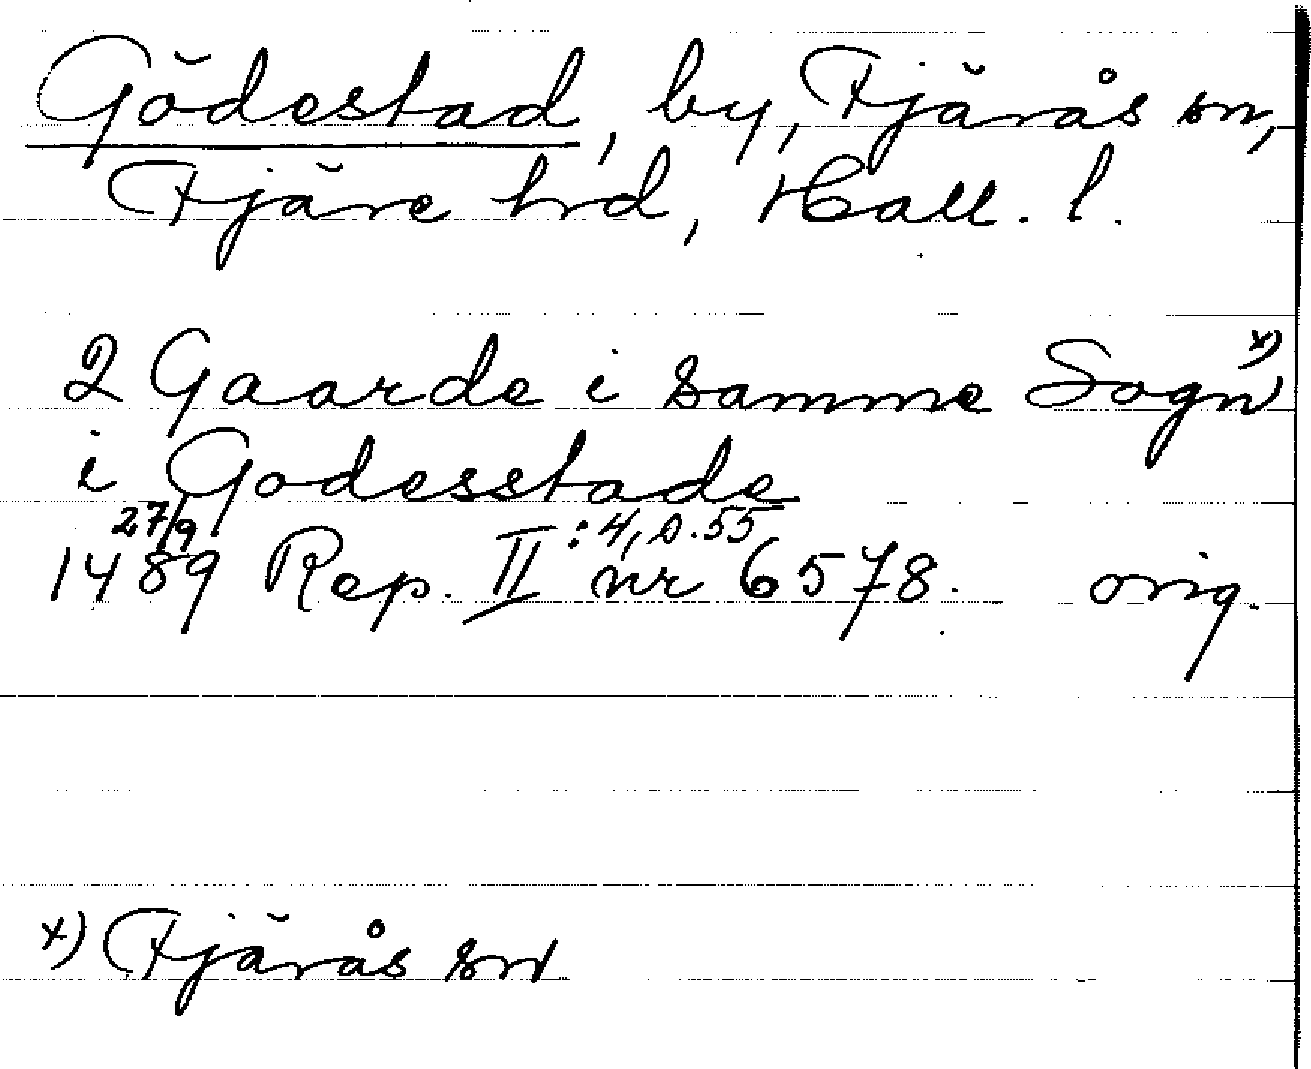 Gödestad, by, Fjärås sn,
Fjäre hrd, Hall. l.
2 Gaarde i samme Sogn x)
i Godesstade
27/9 1489 Rep. II :4, s. 55 nr 6578. orig.
x) Fjärås sn